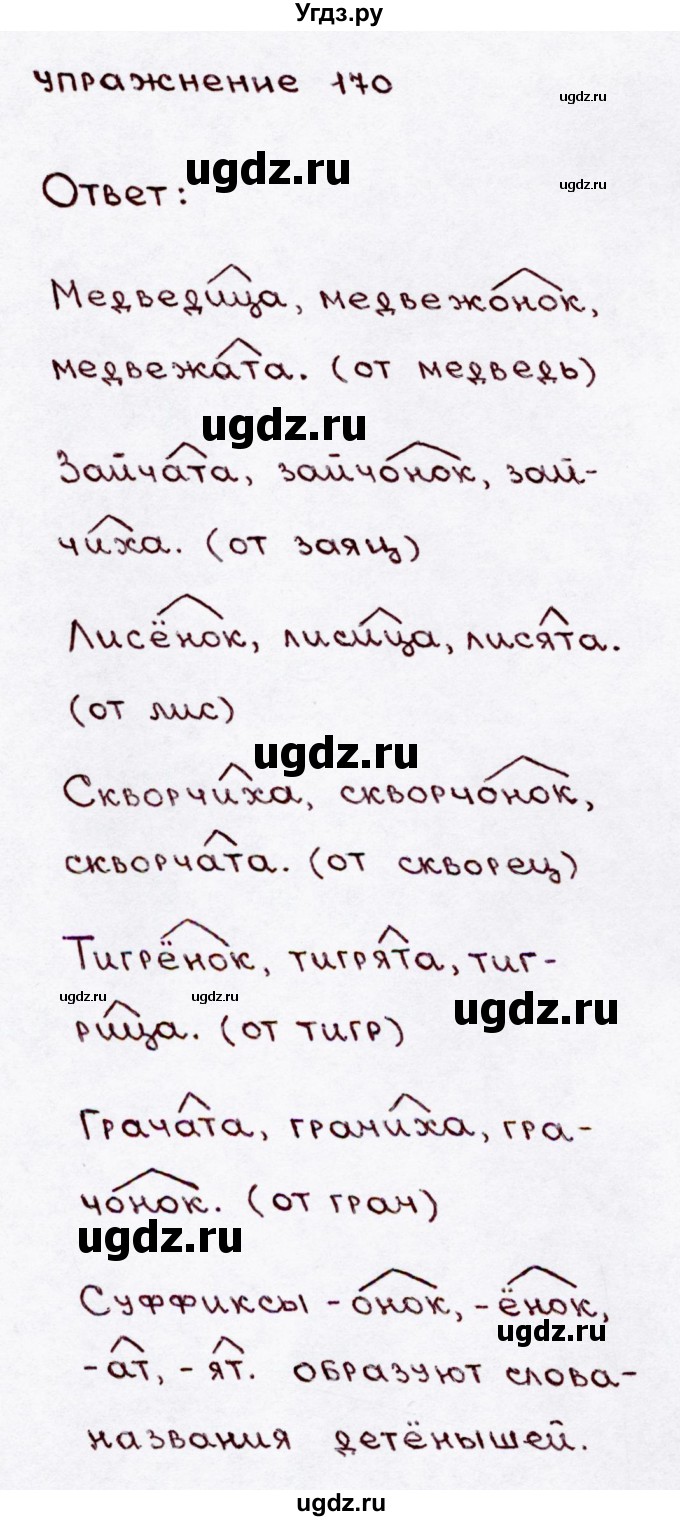 Угдз.ру
упражнение 170
ugdz.ru
ugdz.ru
ugdz.ru
Ответ:
Медведица, медвежонок,
медвежата. (от медведь)
ugdz.ru
Зайчата, зайчонок, зай-
чиха. (от заяц)
Лисёнок, лисица, лисята.
(от лис)
ugdz.ru
Скворчиха, скворчонок,
скворчата. (от скворец)
Тигрёнок, тигрята, тиг-
ugdz.ru
ugdz.ru
ugdz.ru
рица. (от тигр)
Грачата, грачиха, гра-
чонок. (от грач)
ugdz.ru
Суффиксы -онок, -ёнок,
ugdz.ru
-ат, -ят. образуют слова-
названия детёнышей.
ugdz.ru